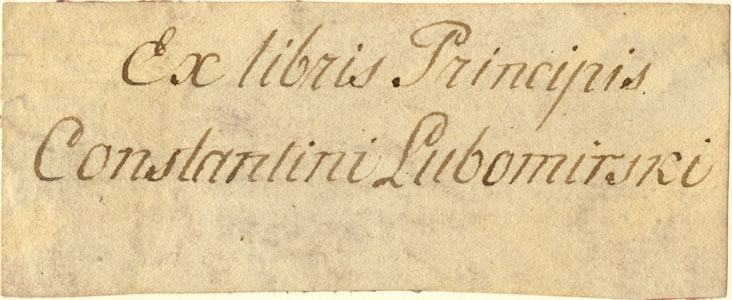 Ex libris Principis
Constantini Lubomirski